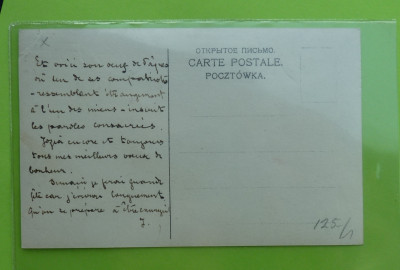 Et voici son œuf de Pâques
où un de ses compatriotes
- ressemblant étrangement
à l'un des miens - inscrit
les paroles consacrées.
encore et toujours
tous mes meilleurs vœux de
bonheur.
Demain je ferai grande
fête car
qu'on se prépare à être
J.
ОТКРЫТОЕ ПИСЬМО.
CARTE POSTALE.
POCZTÓWKA.
125/